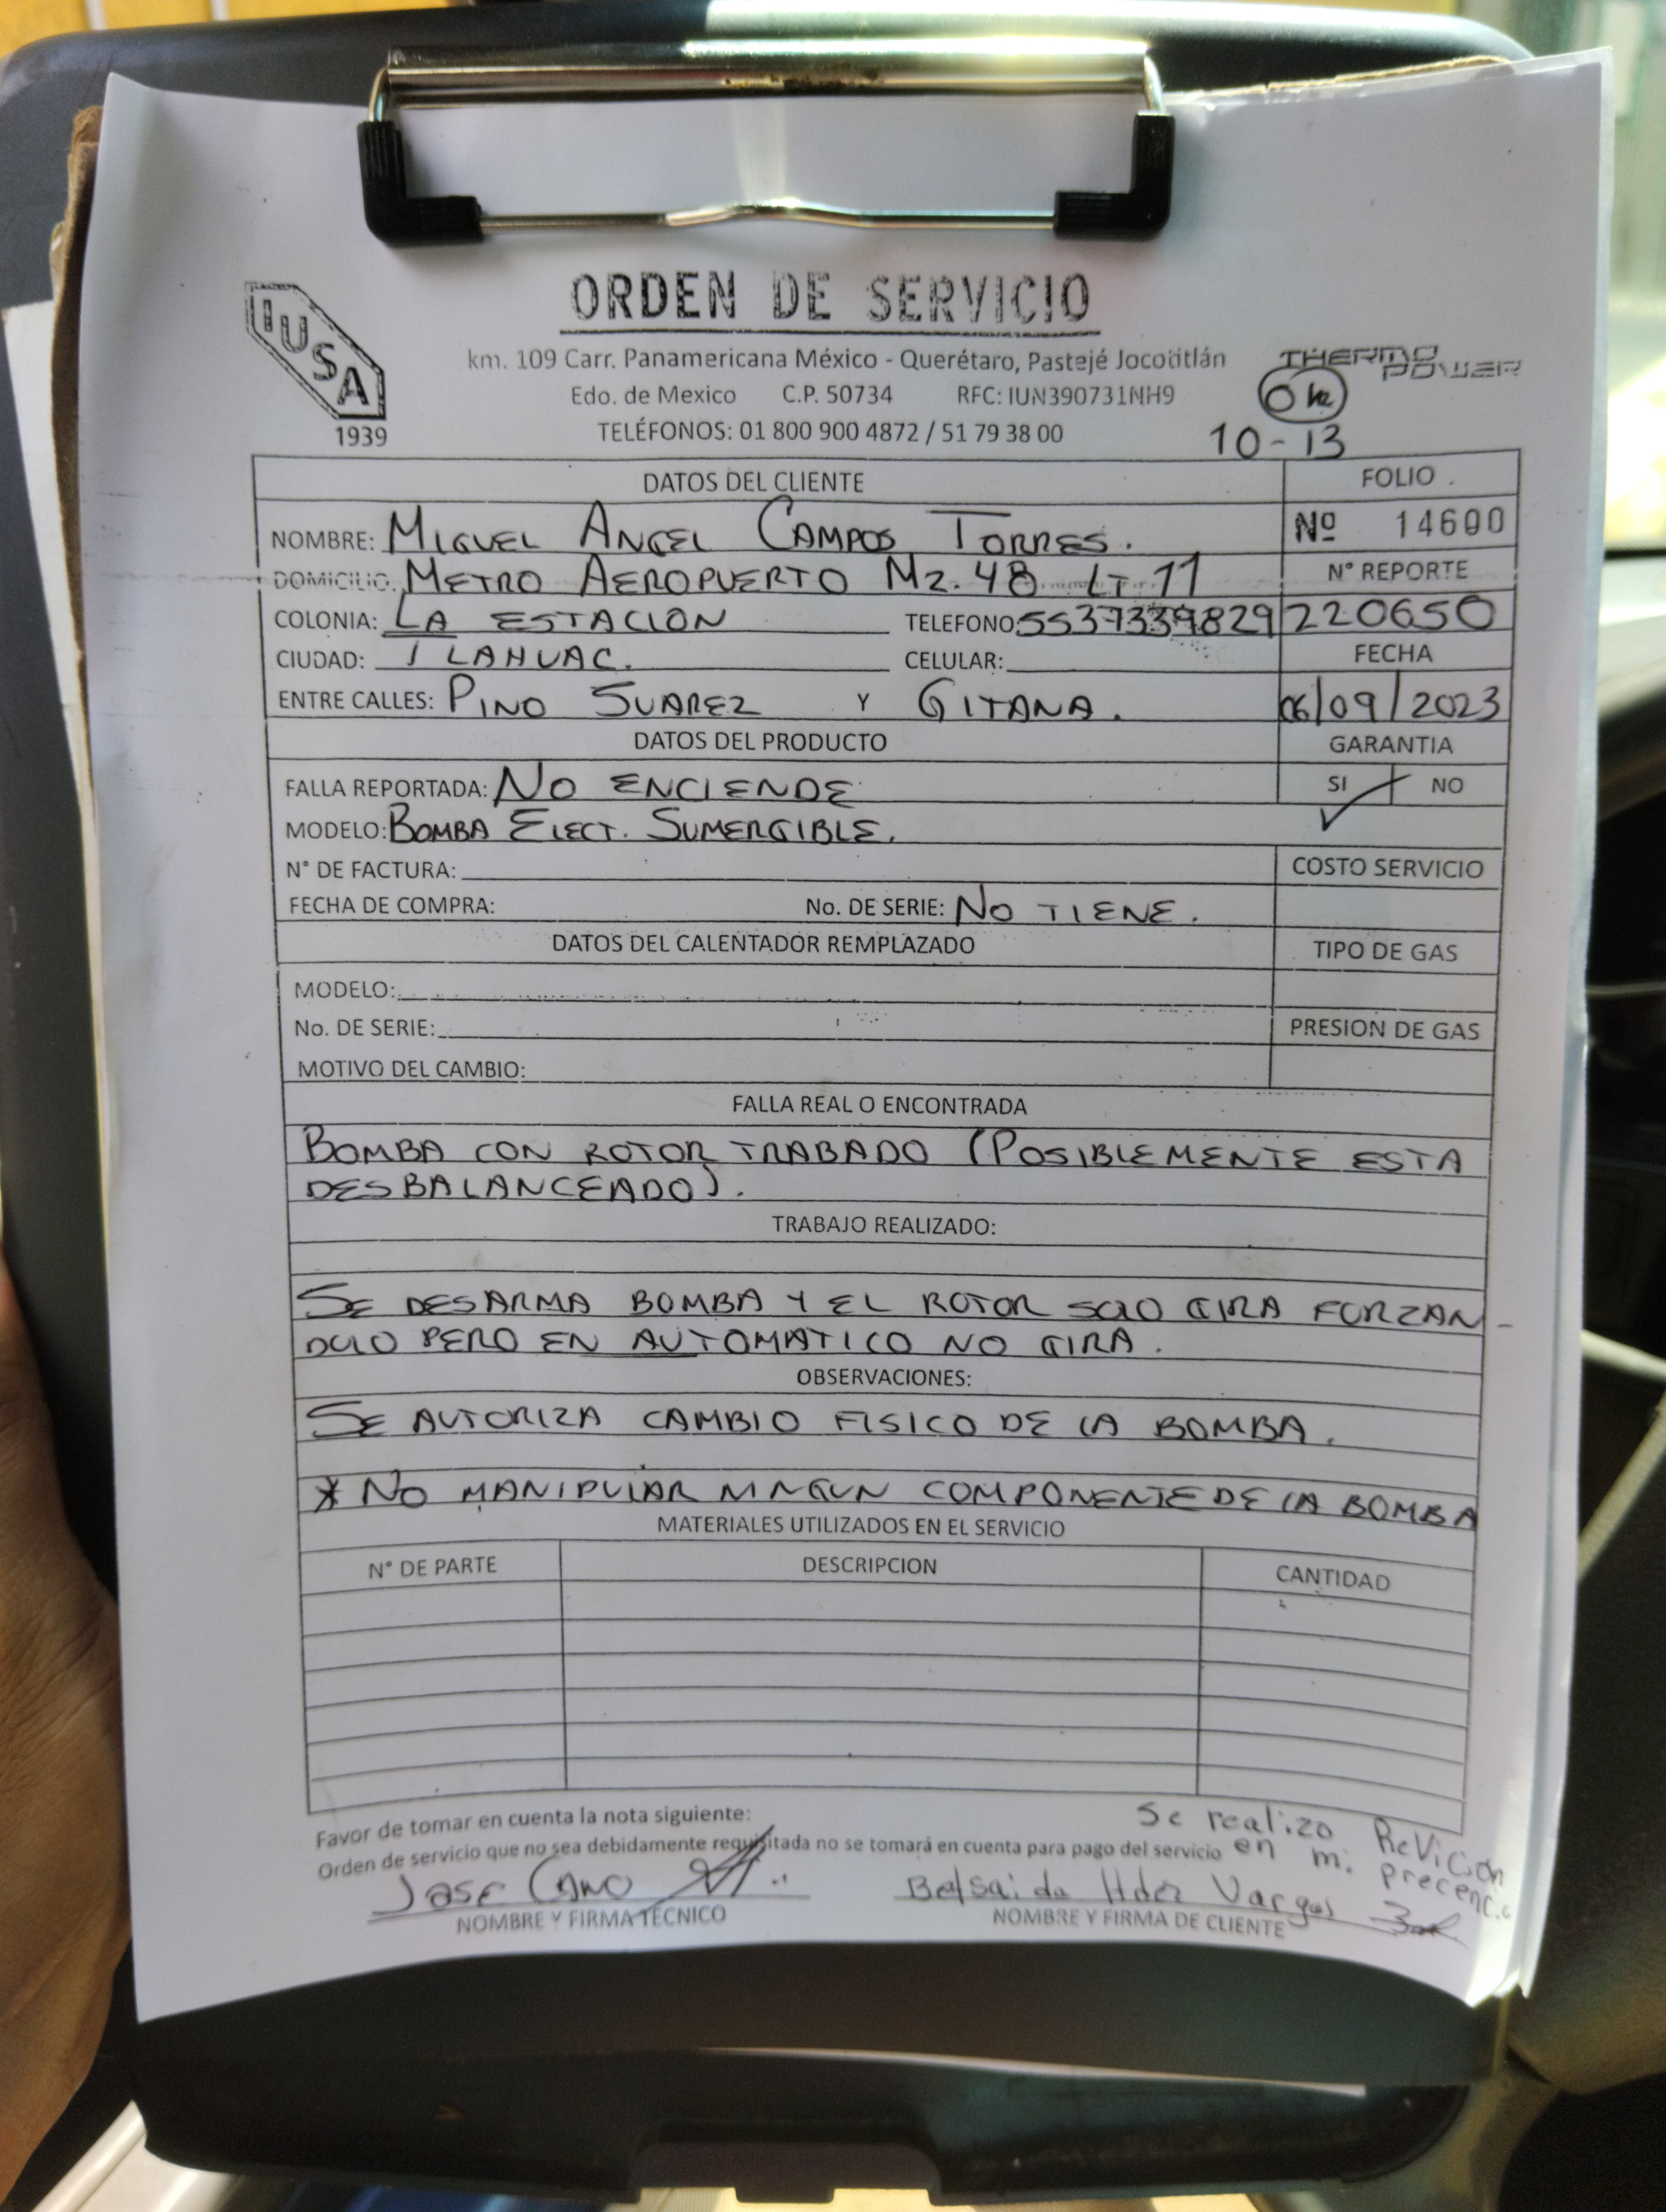 IUSA
1939
ORDEN DE SERVICIO
km. 109 Carr. Panamericana México - Querétaro, Pastejé Jocotitlán
Edo. de Mexico C.P. 50734 RFC: IUN390731NH9
TELÉFONOS: 01 800 900 4872 / 51 79 38 00
THERMO POWER
Ok
10-13
DATOS DEL CLIENTE FOLIO
NOMBRE: MIGUEL ANGEL CAMPOS TORRES. Nº 14600
DOMICILIO: METRO AEROPUERTO MZ. 48 LT. 11 N° REPORTE
COLONIA: LA ESTACION TELEFONO: 5537339829 220650
CIUDAD: TLAHUAC. CELULAR: FECHA
ENTRE CALLES: PINO SUAREZ Y GITANA. 06/09/2023
DATOS DEL PRODUCTO GARANTIA
FALLA REPORTADA: NO ENCIENDE SI NO
MODELO: BOMBA ELECT. SUMERGIBLE.
N° DE FACTURA: COSTO SERVICIO
FECHA DE COMPRA: No. DE SERIE: NO TIENE.
DATOS DEL CALENTADOR REMPLAZADO TIPO DE GAS
MODELO:
No. DE SERIE: PRESION DE GAS
MOTIVO DEL CAMBIO:
FALLA REAL O ENCONTRADA
BOMBA CON ROTOR TRABADO (POSIBLEMENTE ESTA
DESBALANCEADO).
TRABAJO REALIZADO:
SE DESARMA BOMBA Y EL ROTOR SOLO GIRA FORZAN-
DOLO PERO EN AUTOMATICO NO GIRA.
OBSERVACIONES:
SE AUTORIZA CAMBIO FISICO DE LA BOMBA.
* NO MANIPULAR NINGUN COMPONENTE DE LA BOMBA
MATERIALES UTILIZADOS EN EL SERVICIO
N° DE PARTE DESCRIPCION CANTIDAD
Favor de tomar en cuenta la nota siguiente:
Orden de servicio que no sea debidamente requisitada no se tomará en cuenta para pago del servicio
Se realizo ReVicion
en mi precencia
JOSE CANO Betsaida Hdez Vargas
NOMBRE Y FIRMA TECNICO NOMBRE Y FIRMA DE CLIENTE